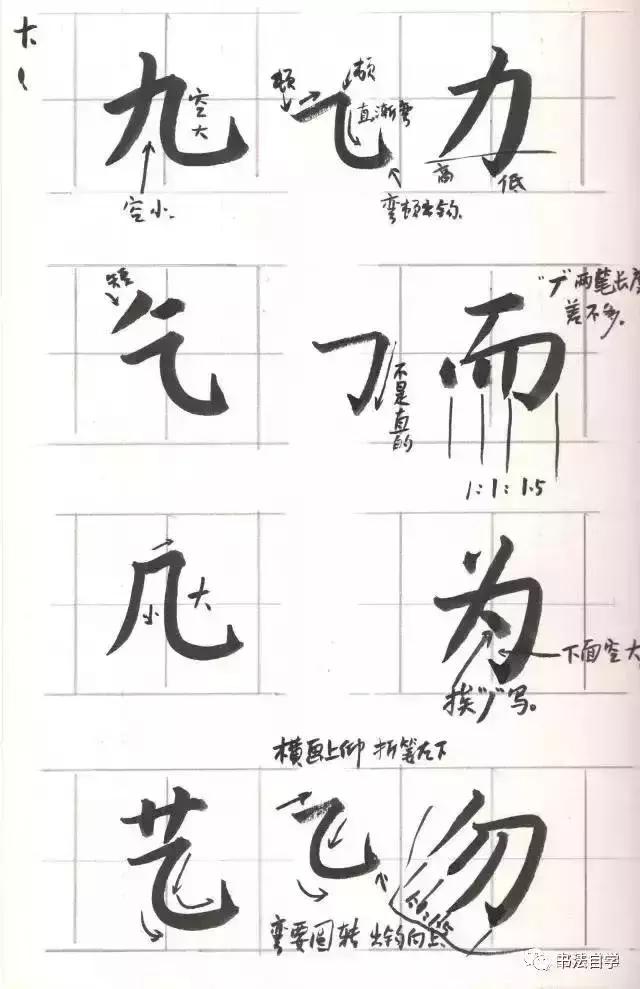 九 空大 顿 顿 直渐弯 力
空小. 弯顿出钩. 高 低
短 气 不是直的 而 "丆"两笔长度差不多。
1:1:1.5
几 小 大 为
挨"丿"写。 下面空大
横画上仰 折笔左下
艺 勿
弯要圆转 出钩向上
书法自学